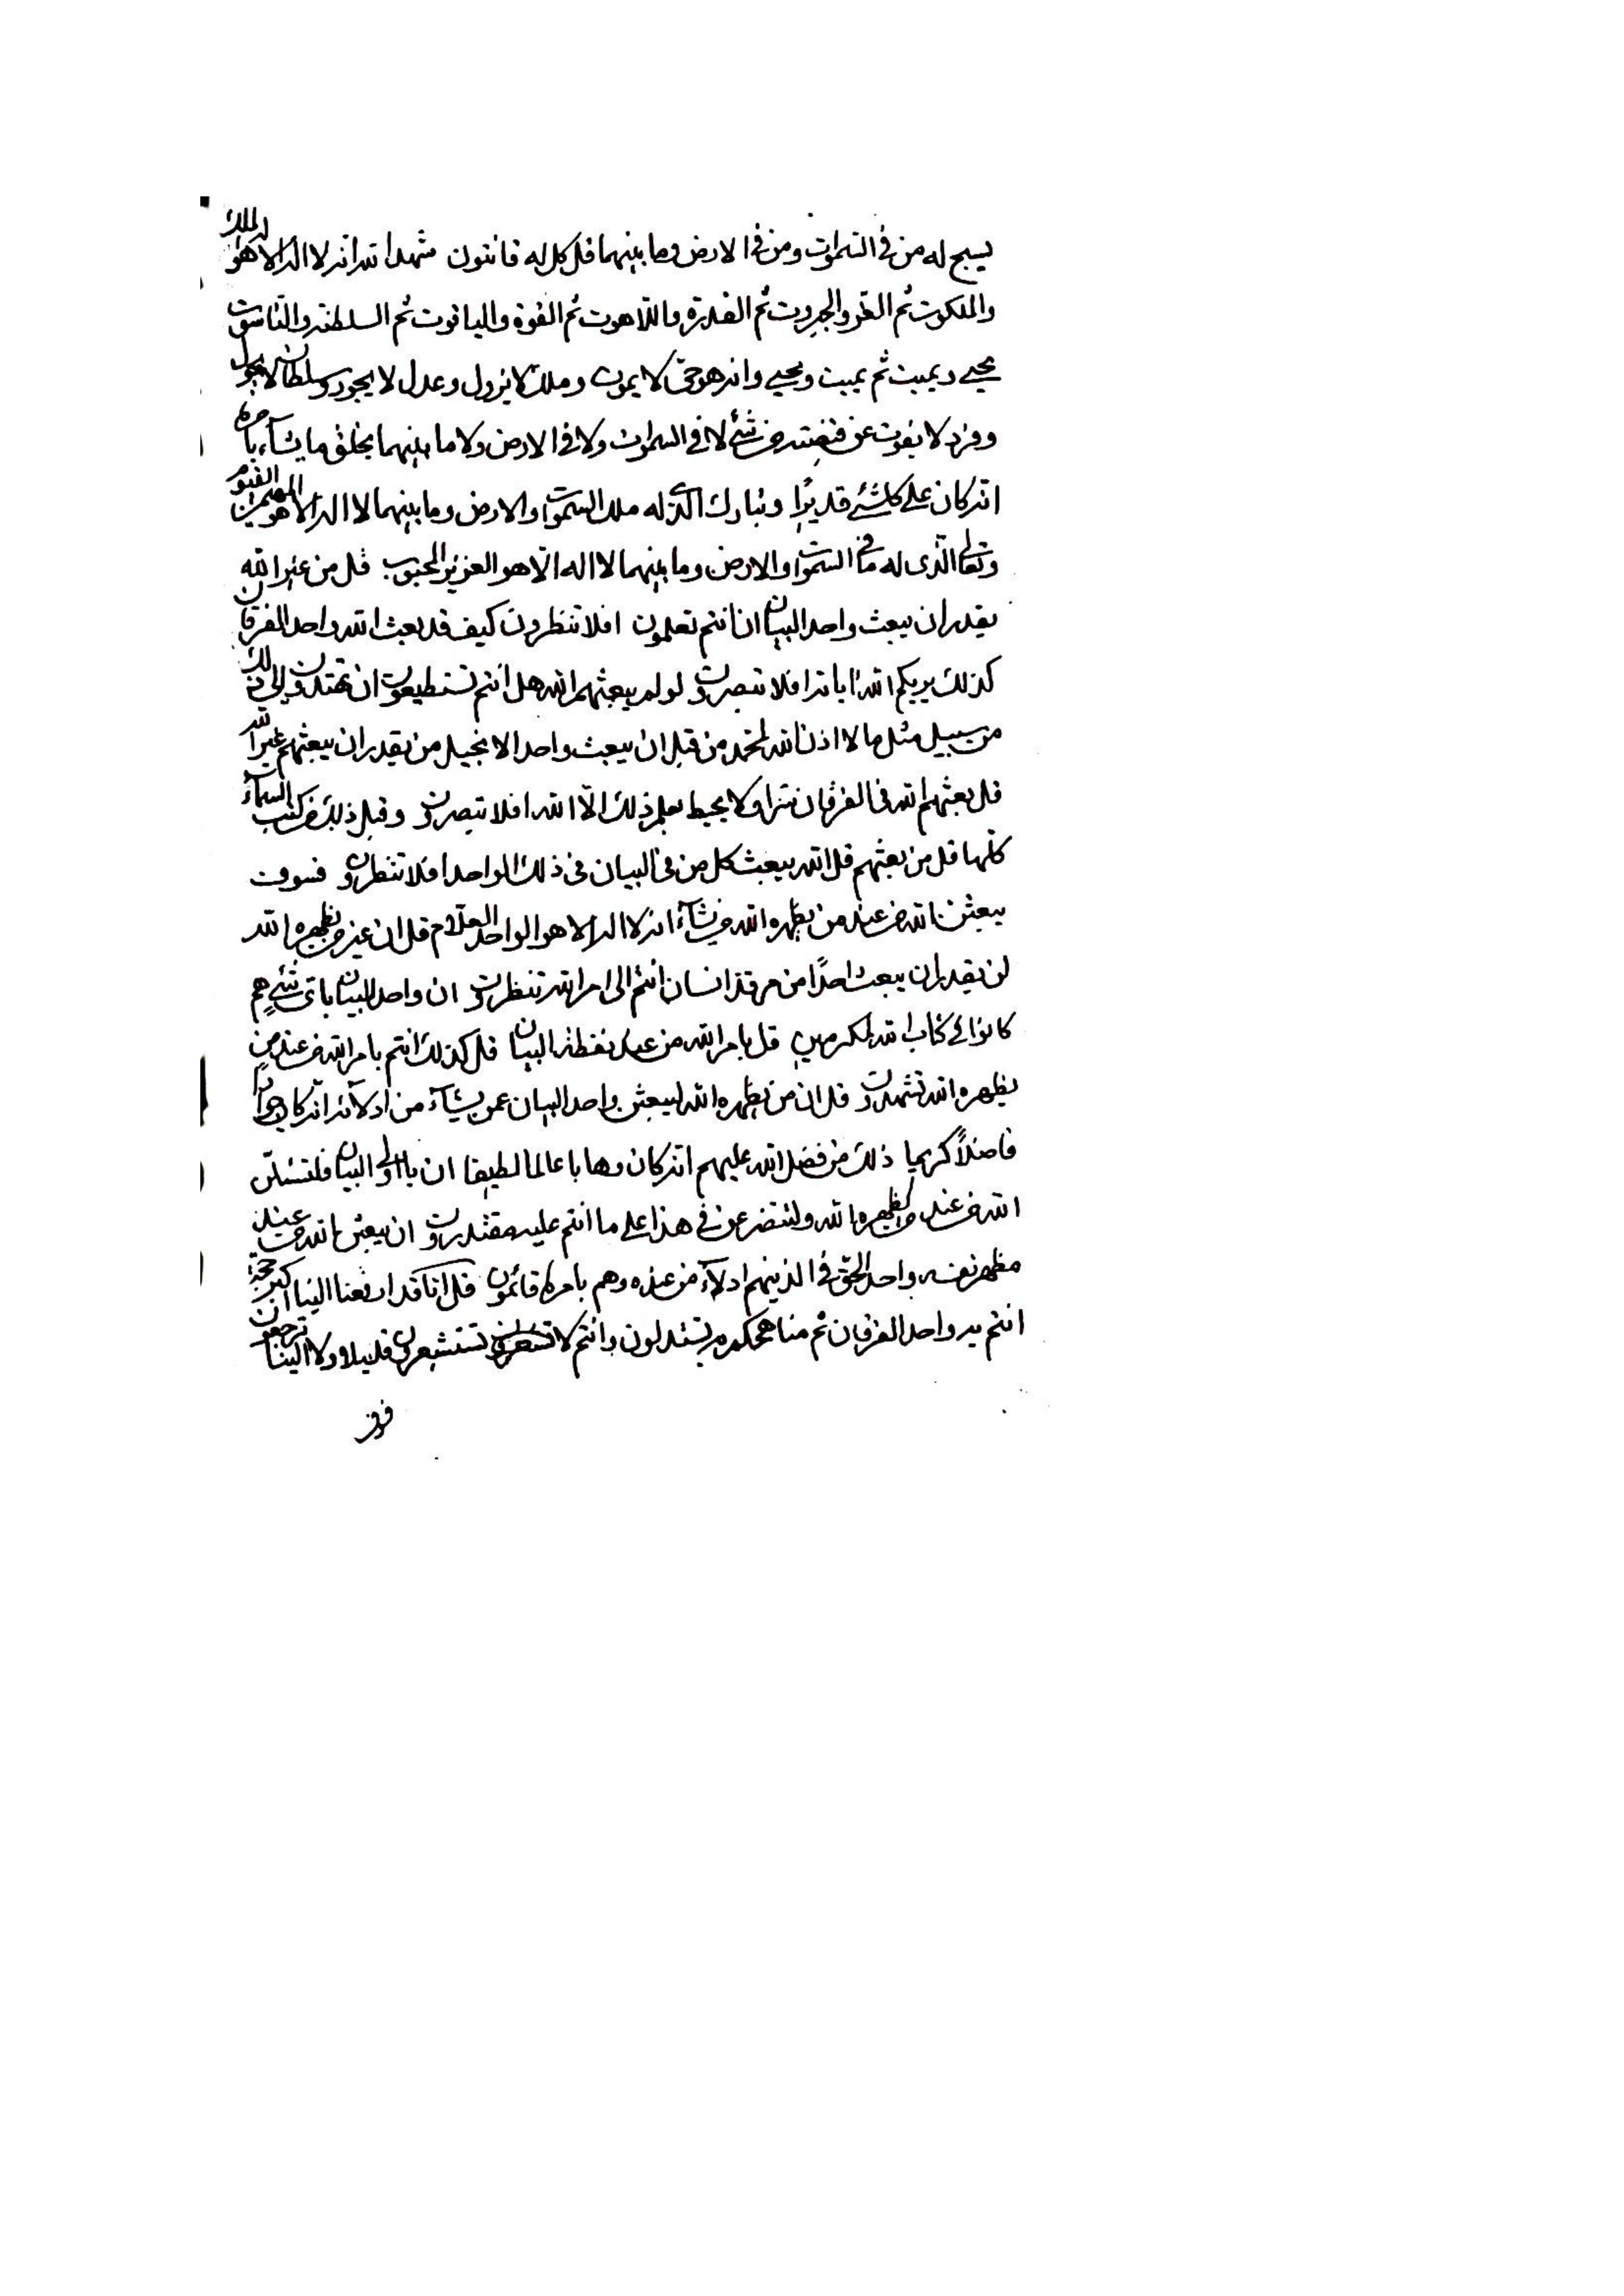 يسبح له من في السموات ومن في الارض وما بينهما قل كل له قانتون شهد الله انه لا اله الا هو له الملك
والملكوت ثم العز والجبروت ثم القدرة واللاهوت ثم القوة والياقوت ثم السلطنة والناسوت
يحيي ويميت ثم يميت ويحيي وانه هو حي لا يموت وملك لا يزول وعدل لا يجور وسلطان لا يحول
وفرد لا يفوت عن قبضته من شئ لا في السموات ولا في الارض ولا ما بينهما يخلق ما يشآء بامره
انه كان على كلشئ قديرا وتبارك الذي له ملك السموات والارض وما بينهما لا اله الا هو المهيمن القيوم
وتعالى الذى له ما في السموات والارض وما بينهما لا اله الا هو العزيز المحبوب قل من غير الله
يقدر ان يبعث واحد البيان ان انتم تعلمون افلا تنظرون كيف قد بعث الله واحد الفرقان
كذلك يريكم الله اياته افلا تبصرون لو لم يبعثهم الله هل انتم تستطيعون ان تهتدون الى ذلك
من سبيل مثل ما لا اذن الله لمحمد من قبل ان يبعث واحد الانجيل من يقدر ان يبعثهم غير الله
قل بعثهم الله في الفرقان ولا يحيط بعلم ذلك الا الله افلا تبصرون وقبل ذلك في كتب السمآء
كلها قل من بعثهم قل الله يبعث كل من في البيان في ذلك الواحد افلا تنظرون فسوف
يبعثن الله من عند من يظهره الله من يشآء انه لا اله الا هو الواحد العلام قل ان غير من يظهره الله
لن يقدر ان يبعث احدًا من مرقد انسان انتم الى امر الله تنظرون ان واحد البيان باى شئ هم
كانوا في كتاب الله لمكرمين قل بامر الله من عند نقطة البيان قل كذلك انتم بامر الله من عند من
يظهره الله تشهدون قل ان من يظهره الله ليبعثن واحد البيان عمن يشآء من ادلآئه انه كان جوادًا
فاضلاً كريما ذلك من فضل الله عليهم انه كان وهابا عالما لطيفا ان يا اولى البيان فلتسئلن
الله من عند من يظهره الله ولتتضرعن في هذا على ما انتم عليه مقتدرون ان يبعثن الله من عند
مظهر نفسه واحد الحق في الذينهم ادلآء من عنده وهم بامره قائمون قل انا قد ارفعنا الينا اكبر حجة ان
انتم به واحد الفرقان ثم مناهجكم به تستدلون وانتم لا تستشعرون قليلا ولا الينا ترجعون